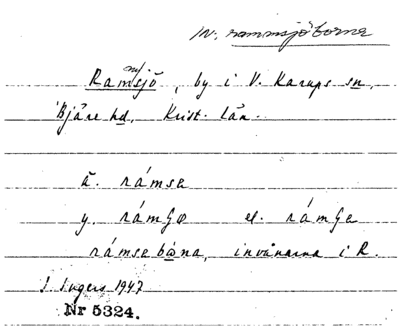 Inv. rammsjöborna
m.
Ramsjö, by i V. Karups sn,
Bjäre hd, Krist. län.
ä. rámse
y. rámʃø el. rámʃe
rámsebòna, invånarna i R.
I. Ingers 1947
Nr 5324.